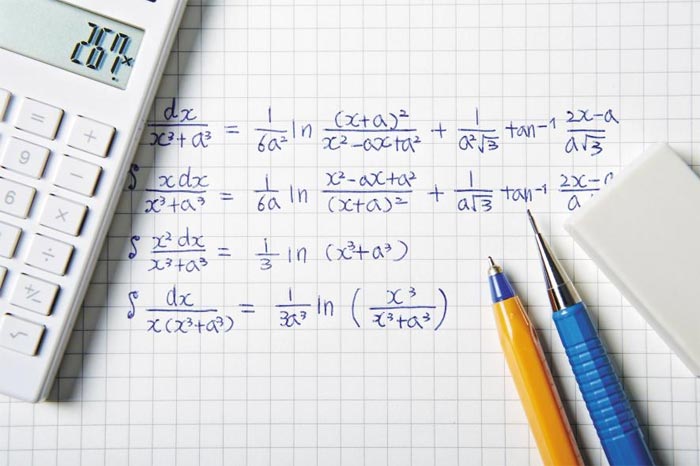 dx/(x³+a³) = 1/(6a²) ln (x+a)²/(x²-ax+a²) + 1/(a²√3) tan-¹ (2x-a)/(a√3)
∫ xdx/(x³+a³) = 1/(6a) ln (x²-ax+a²)/(x+a)² + 1/(a√3) tan-¹ 2x-a/a
∫ x²dx/(x³+a³) = 1/3 ln (x³+a³)
∫ dx/(x(x³+a³)) = 1/(3a³) ln (x³/(x³+a³))
=
+
9
×
6
÷
+/-
√